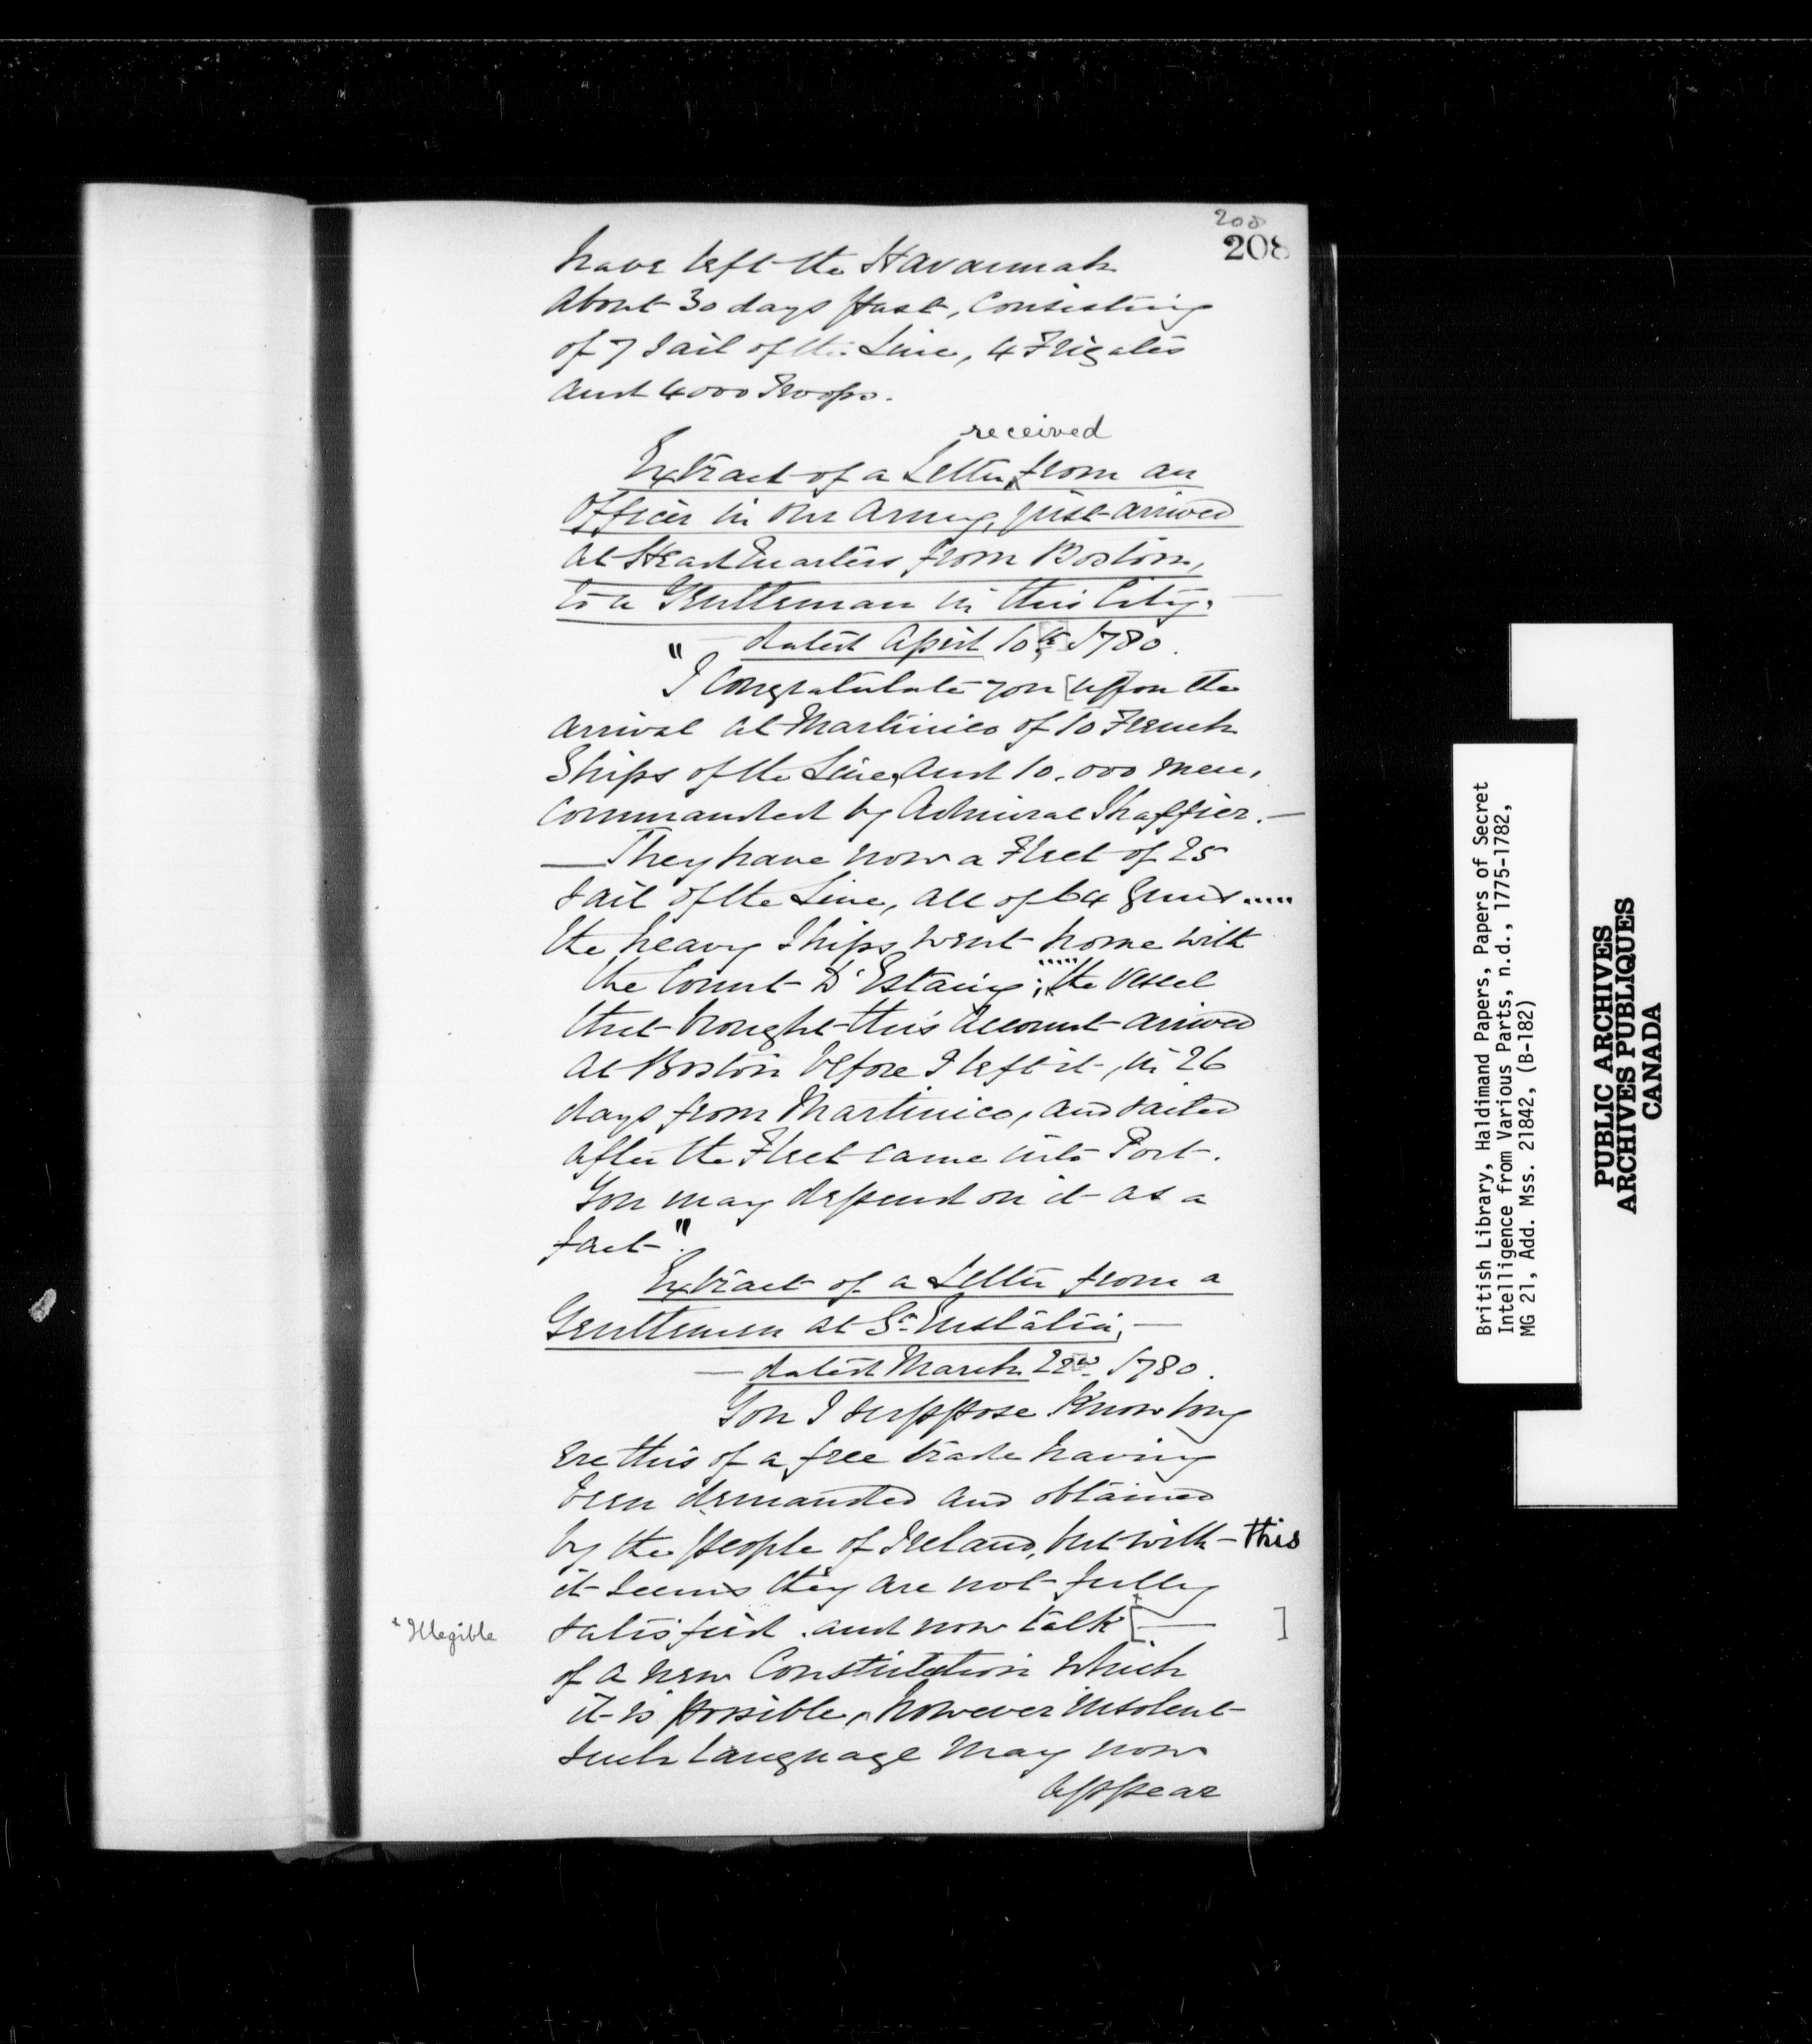 208
208
have left the Havannah
about 30 days past, Consisting
of 7 Sail of the Line, 4 Frigates
and 4000 Troops.
received
Extract of a Letter from an
Officer in our Army, just arrived
at Head Quarters from Boston,
to a Gentleman in this City. —
— dated April 10th, 1780.
"I Congratulate you [up]on the
arrival at Martinico of 10 French
Ships of the Line, and 10,000 men,
commanded by Admiral Shaffier. —
— They have now a Fleet of 25
Sail of the Line, all of 64 Guns .....
the heavy Ships went home with
the Count D'Estaing; ..... the Vessel
that brought this Account arrived
at Boston before I left it, in 26
days from Martinico, and sailed
after the Fleet came into Port.
You may depend on it as a
fact".
Extract of a Letter from a
Gentleman at St. Eustatia, —
— dated March 22nd. 1780.
You I suppose know long
ere this of a free trade having
been demanded and obtained
by the people of Ireland, but with - this
it seems they are not fully
* Illegible
satisfied. and now talk [—+ ]
of a new Constitution which
it is possible, however insolent
such language may now
appear
British Library, Haldimand Papers, Papers of Secret
Intelligence from Various Parts, n.d., 1775-1782,
MG 21, Add. Mss. 21842, (B-182)
PUBLIC ARCHIVES
ARCHIVES PUBLIQUES
CANADA